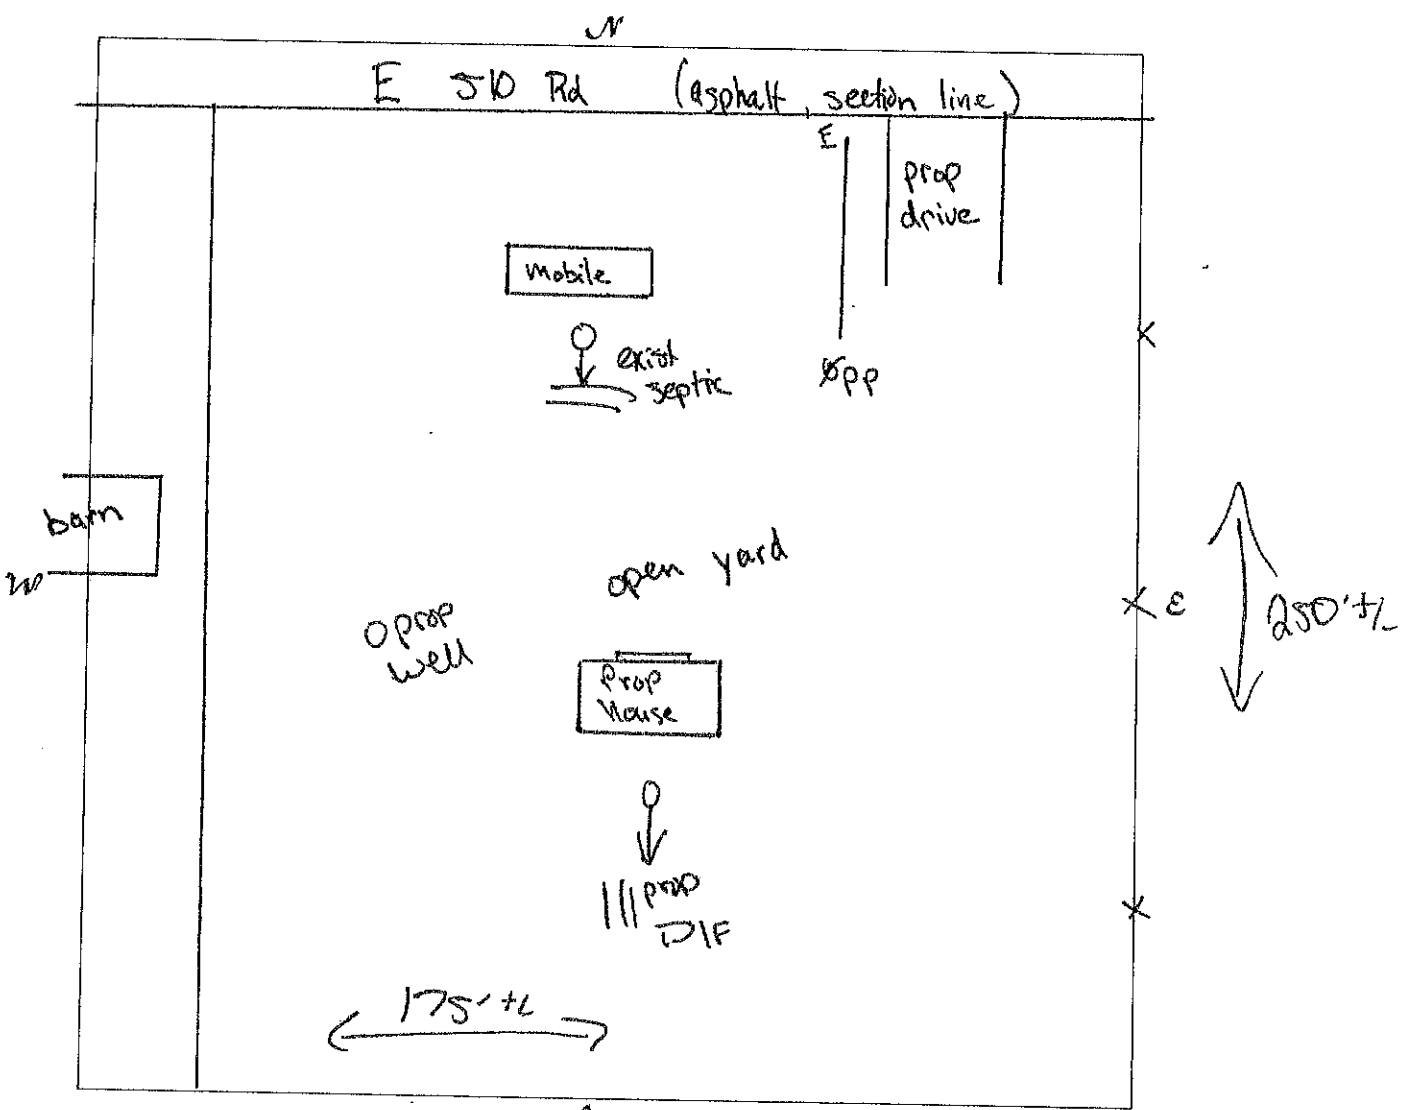 N
E 510 Rd (asphalt, section line)
E
prop
drive
mobile
exist
septic
pp
barn
W
open yard
E
250'+/-
O prop
well
Prop
House
prop
D/F
175'+/-